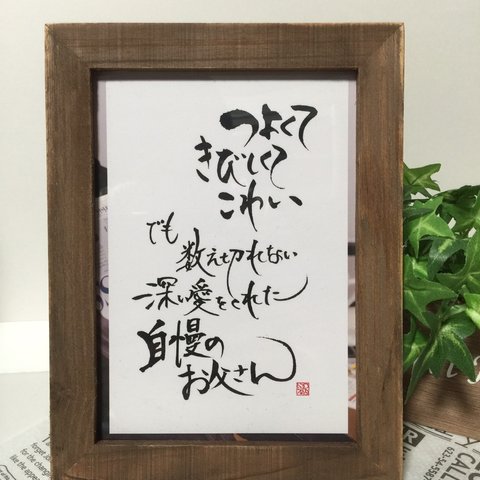 つよくて
きびしくて
こわい
でも
数え切れない
深い愛をくれた
自慢の
お父さん